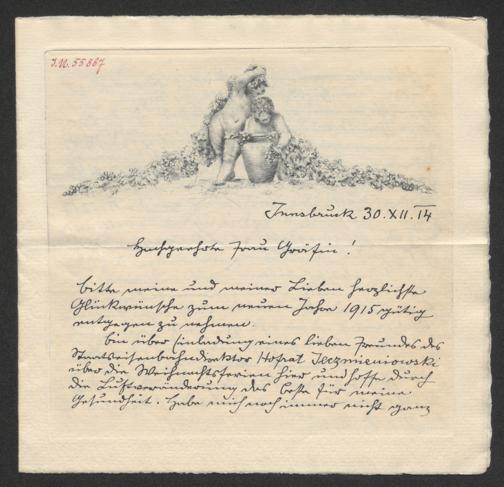 J.N. 55667
Innsbruck 30.XII.14
Hochgeehrte Frau Gräfin!
bitte meine und meiner Lieben herzlichste
Glückwünsche zum neuen Jahre 1915 gütig
entgegen zu nehmen.
Bin über Einladung eines lieben Freundes des
Staatseisenbahndirektor Hofrat Jeczmieniowski
über die Weihnachtsferien hier und hoffe durch
die Luftveränderung das beste für meine
Gesundheit. Habe mich noch immer nicht ganz